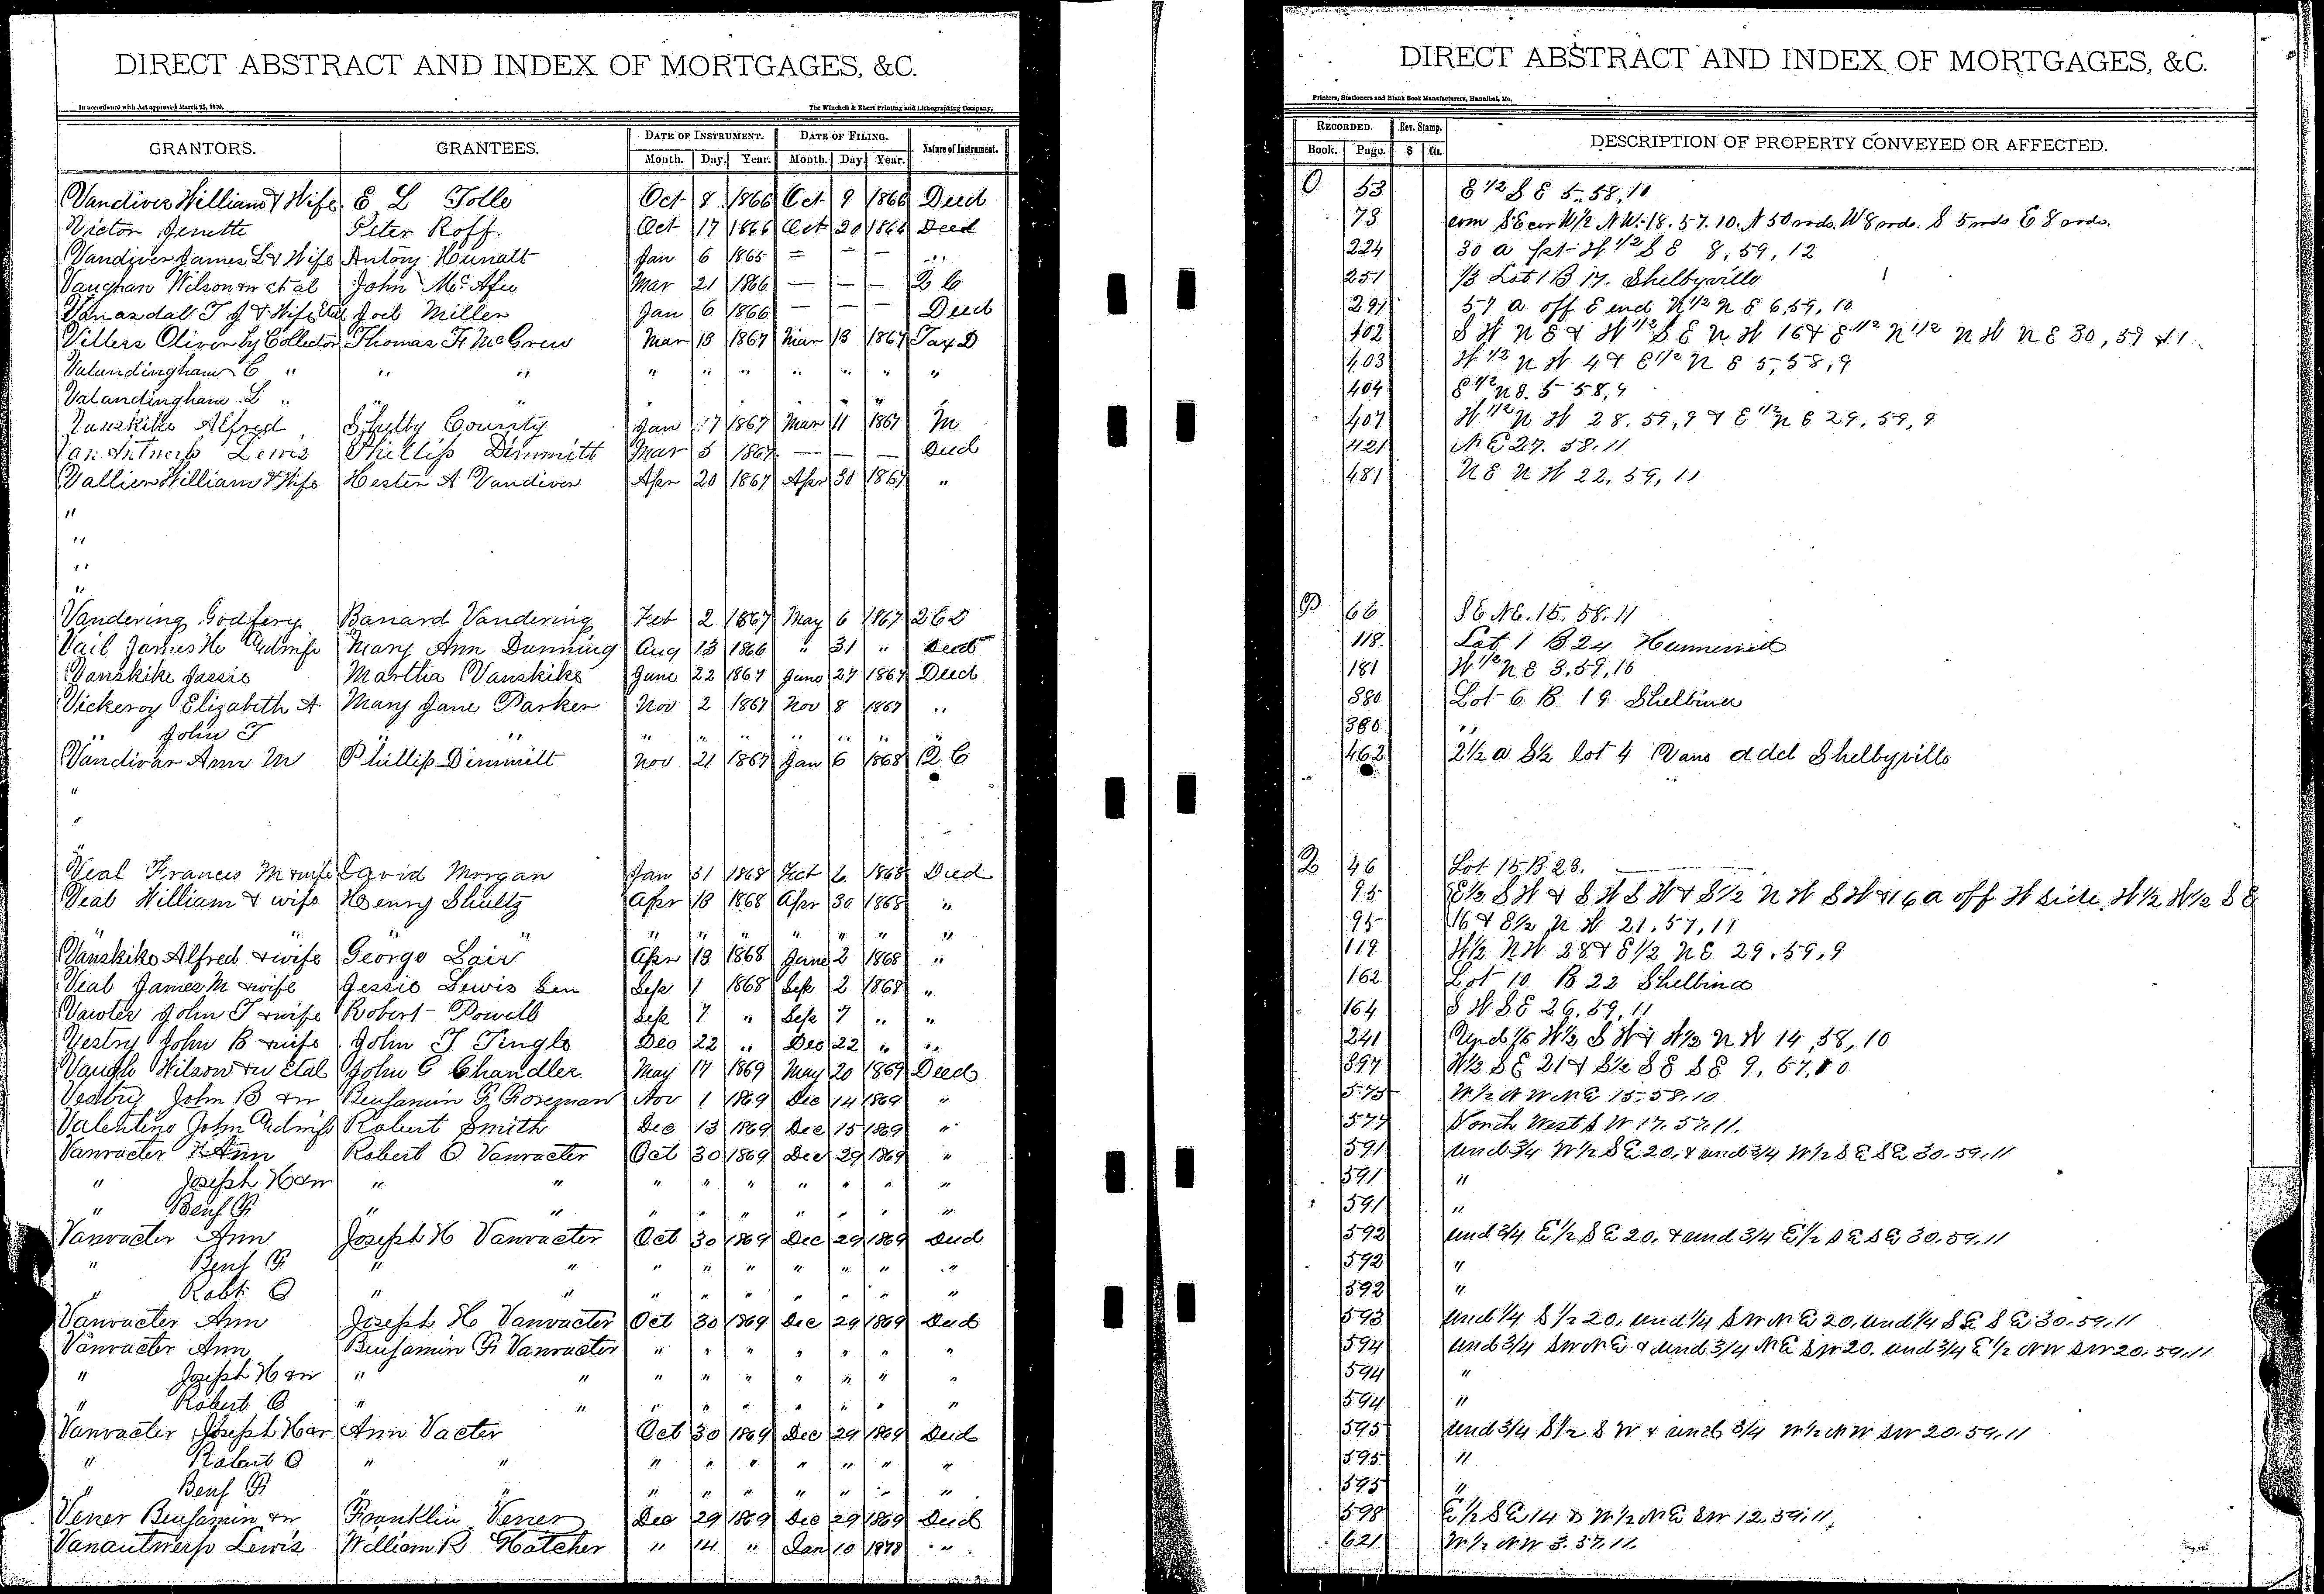 DIRECT ABSTRACT AND INDEX OF MORTGAGES, &C.
In accordance with Act approved March 25, 1870. The Winchell & Ebert Printing and Lithographing Company,
GRANTORS. GRANTEES. DATE OF INSTRUMENT. DATE OF FILING. Nature of Instrument.
Month. Day. Year. Month. Day. Year.
Vandiver William & Wife E L Tolle Oct 8 1866 Oct 9 1866 Deed
Victor Jenette Peter Roff. Oct 17 1866 Oct 20 1866 Deed
Vandiver James L & Wife Antony Hunalt Jan 6 1865 — — — "
Vaughan Wilson & w et al John McAfee Mar 21 1866 — — — Q C
Vanarsdall T J & Wife Etal Joel Miller Jan 6 1866 — — — Deed
Villers Oliver by Collector Thomas F. McGrew Mar 13 1867 Mar 13 1867 Tax D
Valundingham C " " " " " " " " " "
Valandingham L " " " " " " " " " "
Vanskike Alfred Shelby County Jan 17 1867 Mar 11 1867 M
Van Antwerp Lewis Phillip Dimmitt Mar 5 1867 — — — Deed
Vallier William & Wife Hester A Vandiver Apr 20 1867 Apr 30 1867 "
"
"
"
"
Vandering Godfery Banard Vandering Feb 2 1867 May 6 1867 Q C D
Vail James H. & wife Mary Ann Dunning Aug 13 1866 " 31 " Deed
Vanskike Jassie Martha Vanskike June 22 1867 June 27 1867 Deed
Vickeroy Elizabeth A Mary Jane Parker Nov 2 1867 Nov 8 1867 "
" John T " " " " " " " " "
Vandivar Ann M Phillip Dimmitt Nov 21 1867 Jan 6 1868 Q C
"
"
"
Veal Frances M & wife David Morgan Jan 31 1868 Feb 6 1868 Deed
Veal William & wife Henry Shultz Apr 18 1868 Apr 30 1868 "
" " " " " " " " " " "
Vanskike Alfred & wife George Lair Apr 13 1868 June 2 1868 "
Veal James M & wife Jessie Lewis Sen Sep 1 1868 Sep 2 1868 "
Vawter John T & wife Robert Powell Sep 7 " Sep 7 " "
Vestry John B & wife John T Tingle Dec 22 " Dec 22 " "
Vaugh Wilson & w Etal John G Chandler May 17 1869 May 20 1869 Deed
Vestry John B & w Benjamin F Foreman Nov 1 1869 Dec 14 1869 "
Valentine John & wife Robert Smith Dec 13 1869 Dec 15 1869 "
Vanvacter Ann Robert O Vanvacter Oct 30 1869 Dec 29 1869 "
" Joseph H & w " " " " " " " " "
" Benf F " " " " " " " " "
Vanvacter Ann Joseph H Vanvacter Oct 30 1869 Dec 29 1869 Deed
" Benf F " " " " " " " " "
" Robt O " " " " " " " " "
Vanvacter Ann Joseph H Vanvacter Oct 30 1869 Dec 29 1869 Deed
Vanvacter Ann Benjamin F Vanvacter " " " " " " "
" Joseph H & w " " " " " " " " "
" Robert O " " " " " " " " "
Vanvacter Joseph H & w Ann Vacter Oct 30 1869 Dec 29 1869 Deed
" Robert O " " " " " " " " "
" Benf F " " " " " " " " "
Vener Benjamin & w Franklin Vener Dec 29 1869 Dec 29 1869 Deed
Vanantwerp Lewis William B Hatcher " 14 " Jan 10 1878 "
DIRECT ABSTRACT AND INDEX OF MORTGAGES, &C.
Printers, Stationers and Blank Book Manufacturers, Hannibal, Mo.
RECORDED. Rev. Stamp. DESCRIPTION OF PROPERTY CONVEYED OR AFFECTED.
Book. Page. $ Cts.
O 53 E 1/2 S E 5. 58, 10
73 com S E cor W 1/2 N W. 18. 57. 10. N 50 rods. W 8 rods. S 5 rods E 8 rods.
224 30 a pt W 1/2 S E 8, 59, 12
251 1/3 Lot 1 B 17. Shelbyville
291 57 a off E end N 1/2 N E 6, 59, 10
402 S W N E & W 1/2 S E N W 16 & E 1/2 N 1/2 N W N E 30, 59 & 11
403 W 1/2 N W 4 & E 1/2 N E 5, 58, 9
404 E 1/2 N E. 5 58, 9
407 W 1/2 N W 28. 59, 9 & E 1/2 N E 29, 59, 9
421 N E 27. 58. 11
481 N E N W 22, 59, 11
P 66 S E N E. 15. 58. 11
118. Lot 1 B 24 Hunnewell
181 W 1/2 N E 3, 59, 10
380 Lot 6 B 19 Shelbina
380 "
462 2 1/2 a S 1/2 lot 4 Vans add Shelbyville
Q 46 Lot 15 B 23.
95 E 1/2 S W & S W S W & S 1/2 N W S W & 16 a off W side. W 1/2 W 1/2 S E
95 16 & E 1/2 N W 21. 57, 11
119 W 1/2 N W 28 & E 1/2 N E 29. 59, 9
162 Lot 10 B 22 Shelbina
164 S W S E 26. 59, 11
241 Und 1/6 W 1/2 S W & W 1/2 N W 14, 58, 10
397 W 1/2 S E 21 & S 1/2 S E S E 9, 57, 10
575 W 1/2 N W N E 15. 58. 10
577 North West S W 17. 57. 11.
591 und 3/4 W 1/2 S E 20. & und 3/4 W 1/2 S E S E 30. 59. 11
591 "
591 "
592 und 3/4 E 1/2 S E 20. & und 3/4 E 1/2 S E S E 30. 59. 11
592 "
592 "
593 und 1/4 S 1/2 20. und 1/4 S W N E 20. und 1/4 S E S E 30. 59. 11
594 und 3/4 S W N E & und 3/4 N E S W 20. und 3/4 E 1/2 N W S W 20. 59. 11
594 "
594 "
595 und 3/4 S 1/2 S W & und 3/4 W 1/2 N W S W 20. 59. 11
595 "
595 "
598 E 1/2 S E 14 & W 1/2 N E S W 12. 59. 11.
621 W 1/2 N W 3. 57. 11.